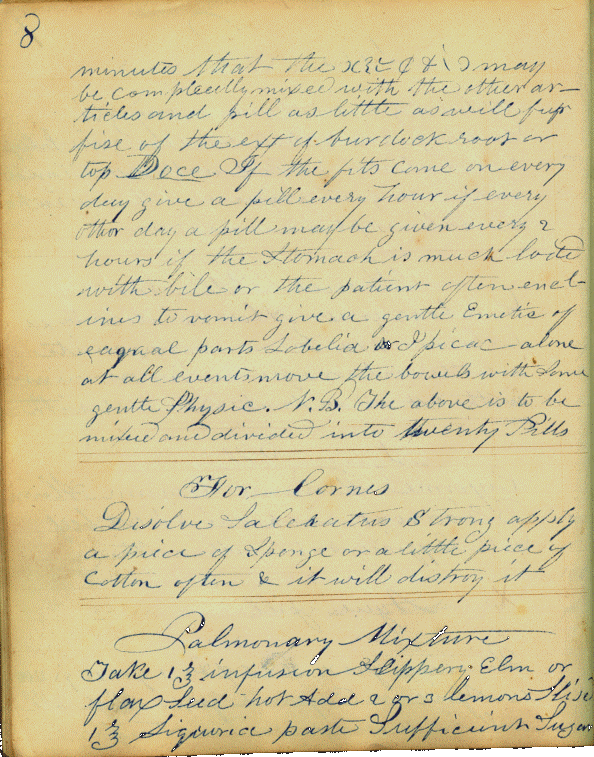 8
minutes that the
may
be compleetly mixed with the other ar-
ticles and pill as little as will
fise of the ext of burdock root or
top Doce If the fits come on every
day give a pill every hour if every
other day a pill may be given every 2
hours if the Stomach is much loded
with bile or the patient often encl-
ines to vomit give a gentle Emetic of
eaqual parts Lobelia or Ipicac alone
at all events move the bowels with Some
gentle Physic. N.B. The above is to be
mixed and divided into twenty Pills
For Cornes
Disolve Saleratus Strong apply
a piece of Sponge or a little piece of
Cotton often & it will distroy it
Palmonary Mixture
Take 1 ℥ infusion Slippery Elm or
flax Seed hot Add 2 or 3 lemons Slised
1 ℥ Liquria paste Sufficient Sugar